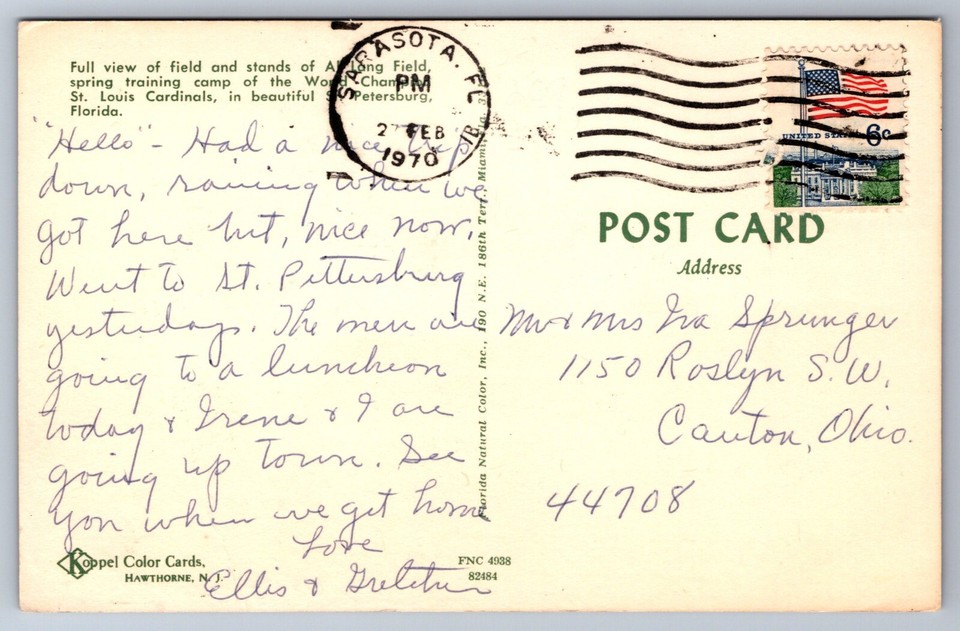 Full view of field and stands of Al Lang Field,
spring training camp of the World Champion
St. Louis Cardinals, in beautiful St. Petersburg,
Florida.
SARASOTA, FL
PM
FEB
1970
UNITED STATES
6c
"Hello" - Had a nice trip
down, raining when we
got here but, nice now.
Went to St. Pittersburg
yesterday. The men are
going to a luncheon
today & Irene & I are
going up town. See
you when we get home
Love
Ellis & Gretchen
POST CARD
Address
Mr & Mrs Ira Sprunger
1150 Roslyn S.W.
Canton, Ohio.
44708
Florida Natural Color, Inc., 190 N.E. 186th Terr., Miami,
Koppel Color Cards,
HAWTHORNE, N. J.
FNC 4938
82484